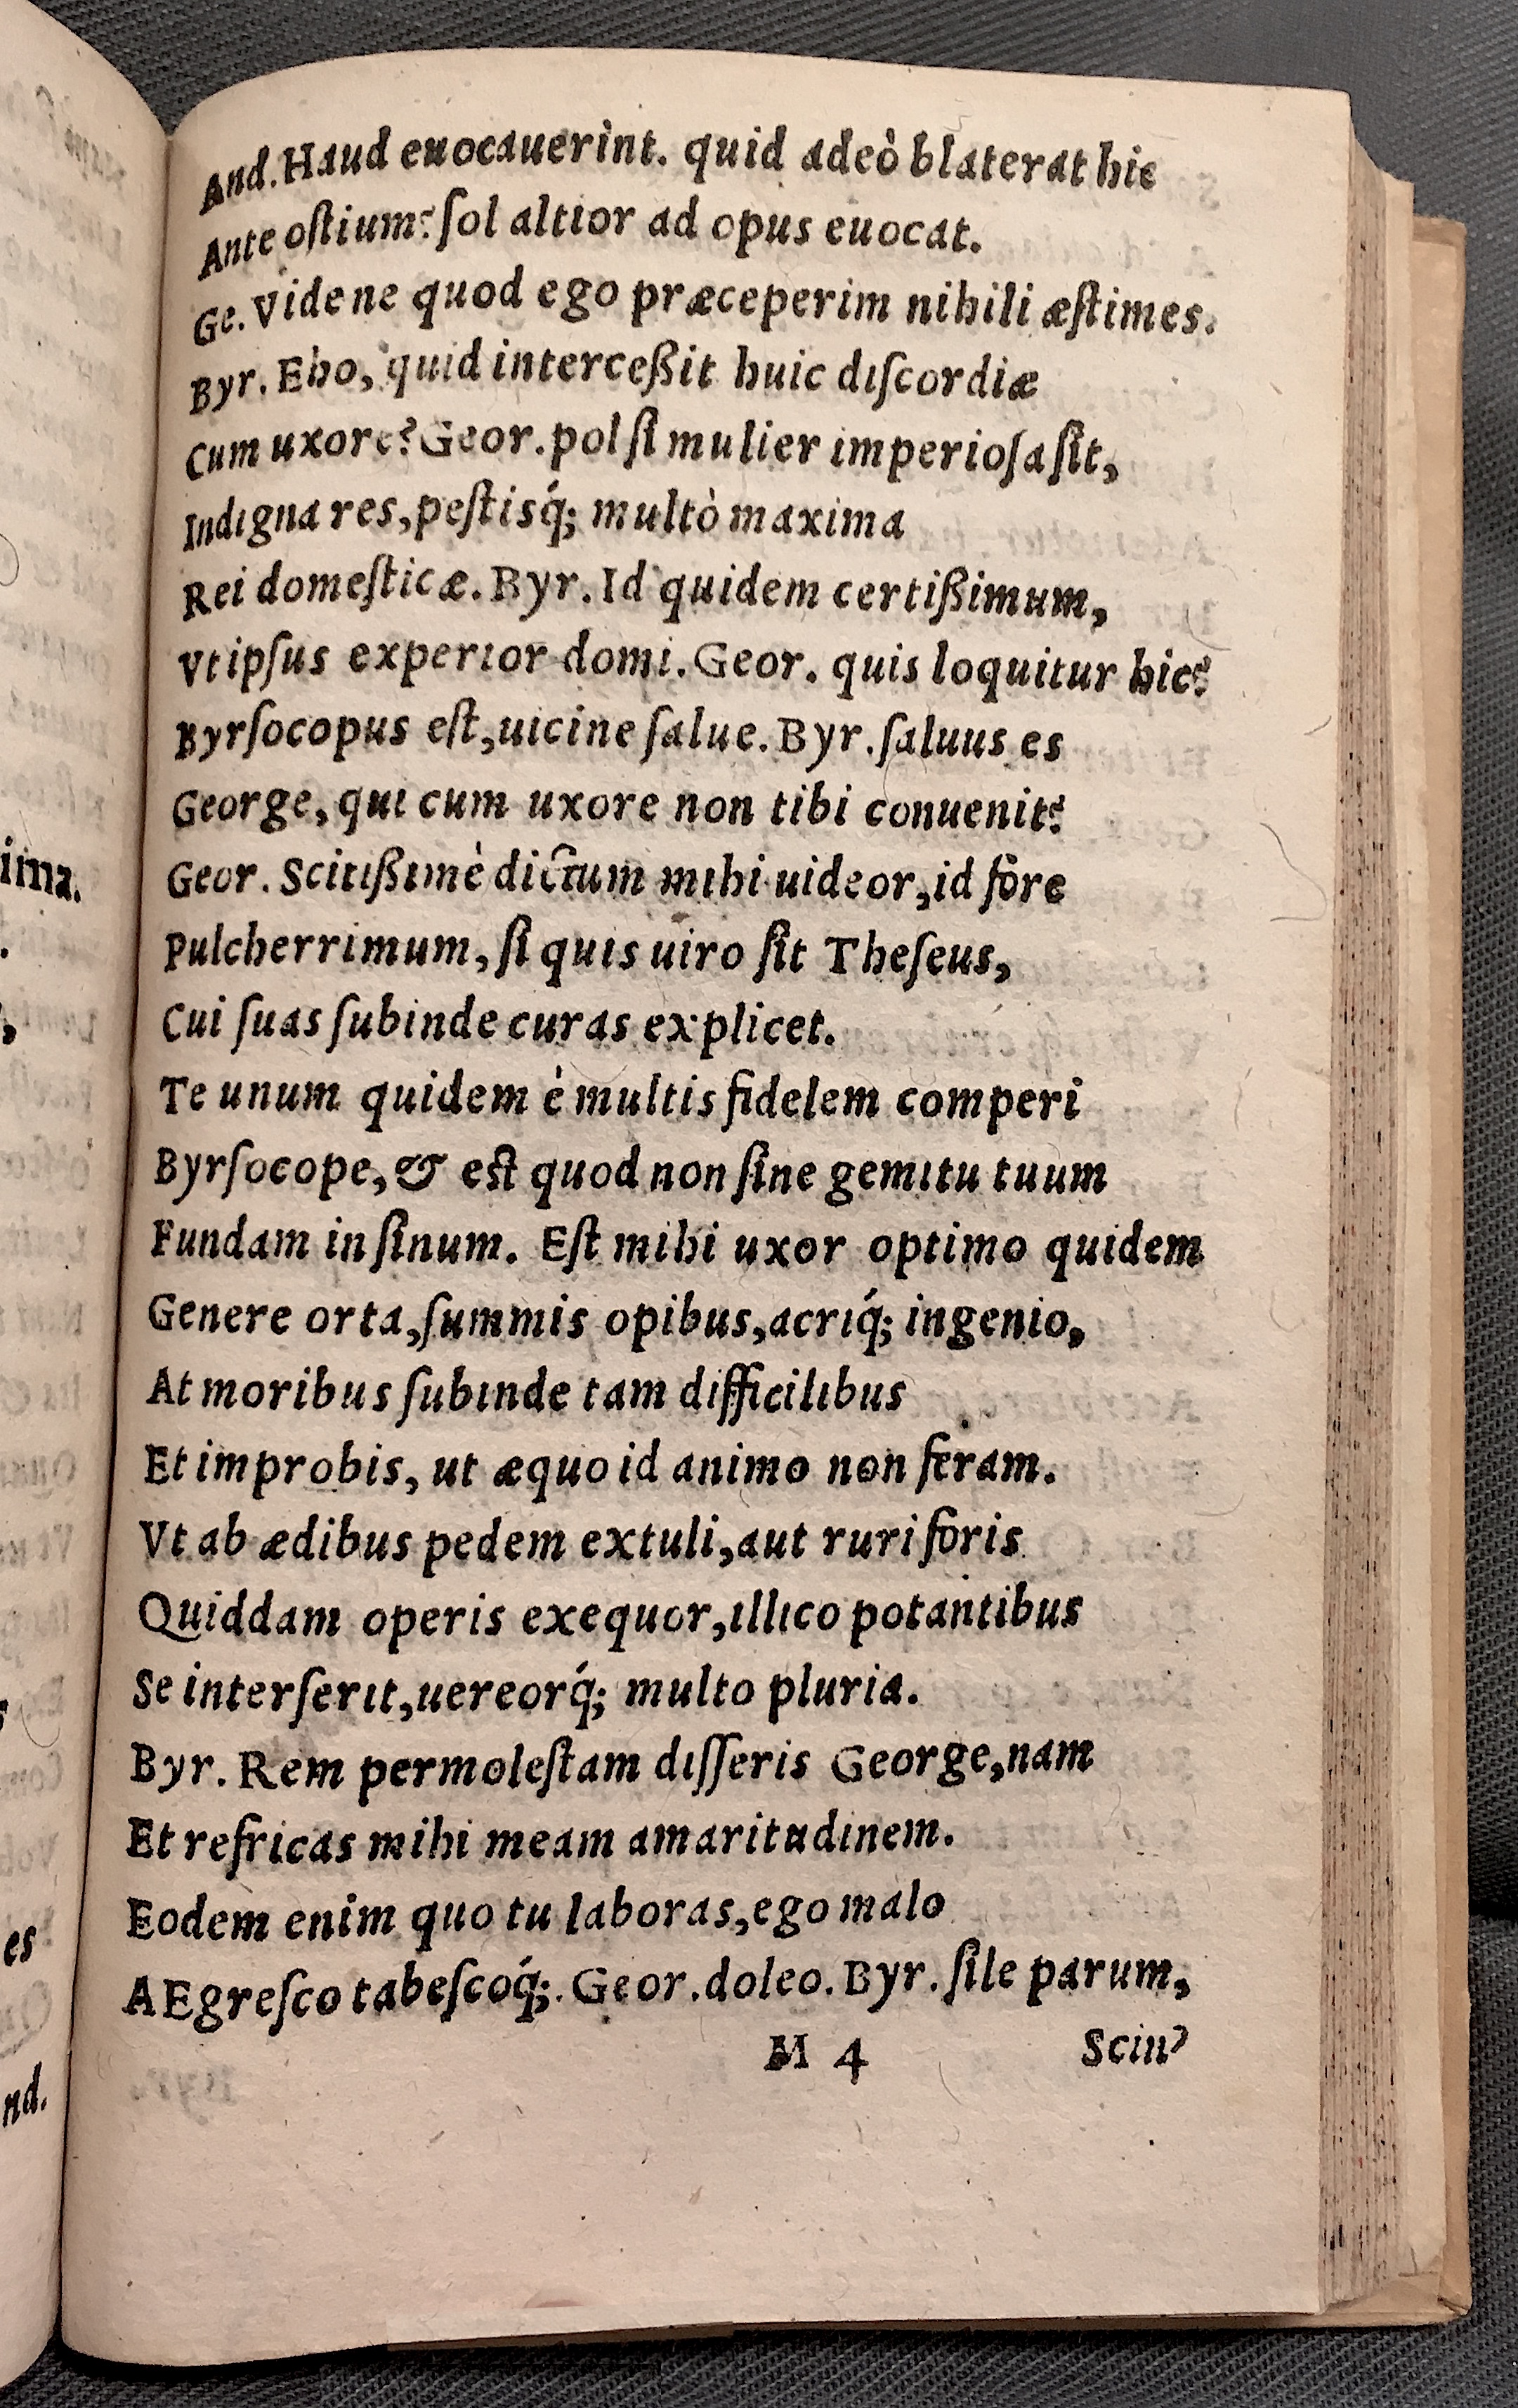 And. Haud euocauerint. quid adeò blaterat hic
Ante oſtium? ſol altior ad opus euocat.
Ge. Vide ne quod ego præceperim nihili æſtimes.
Byr. Eho, quid interceßit huic diſcordiæ
Cum uxore? Geor. pol ſi mulier imperioſa ſit,
Indigna res, peſtisq́; multò maxima
Rei domeſticæ. Byr. Id quidem certißimum,
Vt ipſus experior domi. Geor. quis loquitur hic?
Byrſocopus eſt, uicine ſalue. Byr. ſaluus es
George, qui cum uxore non tibi conuenit?
Geor. Scitißimè dictum mihi uideor, id fore
Pulcherrimum, ſi quis uiro ſit Theſeus,
Cui ſuas ſubinde curas explicet.
Te unum quidem è multis fidelem comperi
Byrſocope, & eſt quod non ſine gemitu tuum
Fundam in ſinum. Eſt mihi uxor optimo quidem
Genere orta, ſummis opibus, acriq́; ingenio,
At moribus ſubinde tam difficilibus
Et improbis, ut æquo id animo non feram.
Vt ab ædibus pedem extuli, aut ruri foris
Quiddam operis exequor, illico potantibus
Se interſerit, uereorq́; multo pluria.
Byr. Rem permoleſtam diſſeris George, nam
Et refricas mihi meam amaritudinem.
Eodem enim quo tu laboras, ego malo
AEgreſco tabeſcoq́;. Geor. doleo. Byr. ſile parum,
M 4 Scin'
ima.
es
nd.